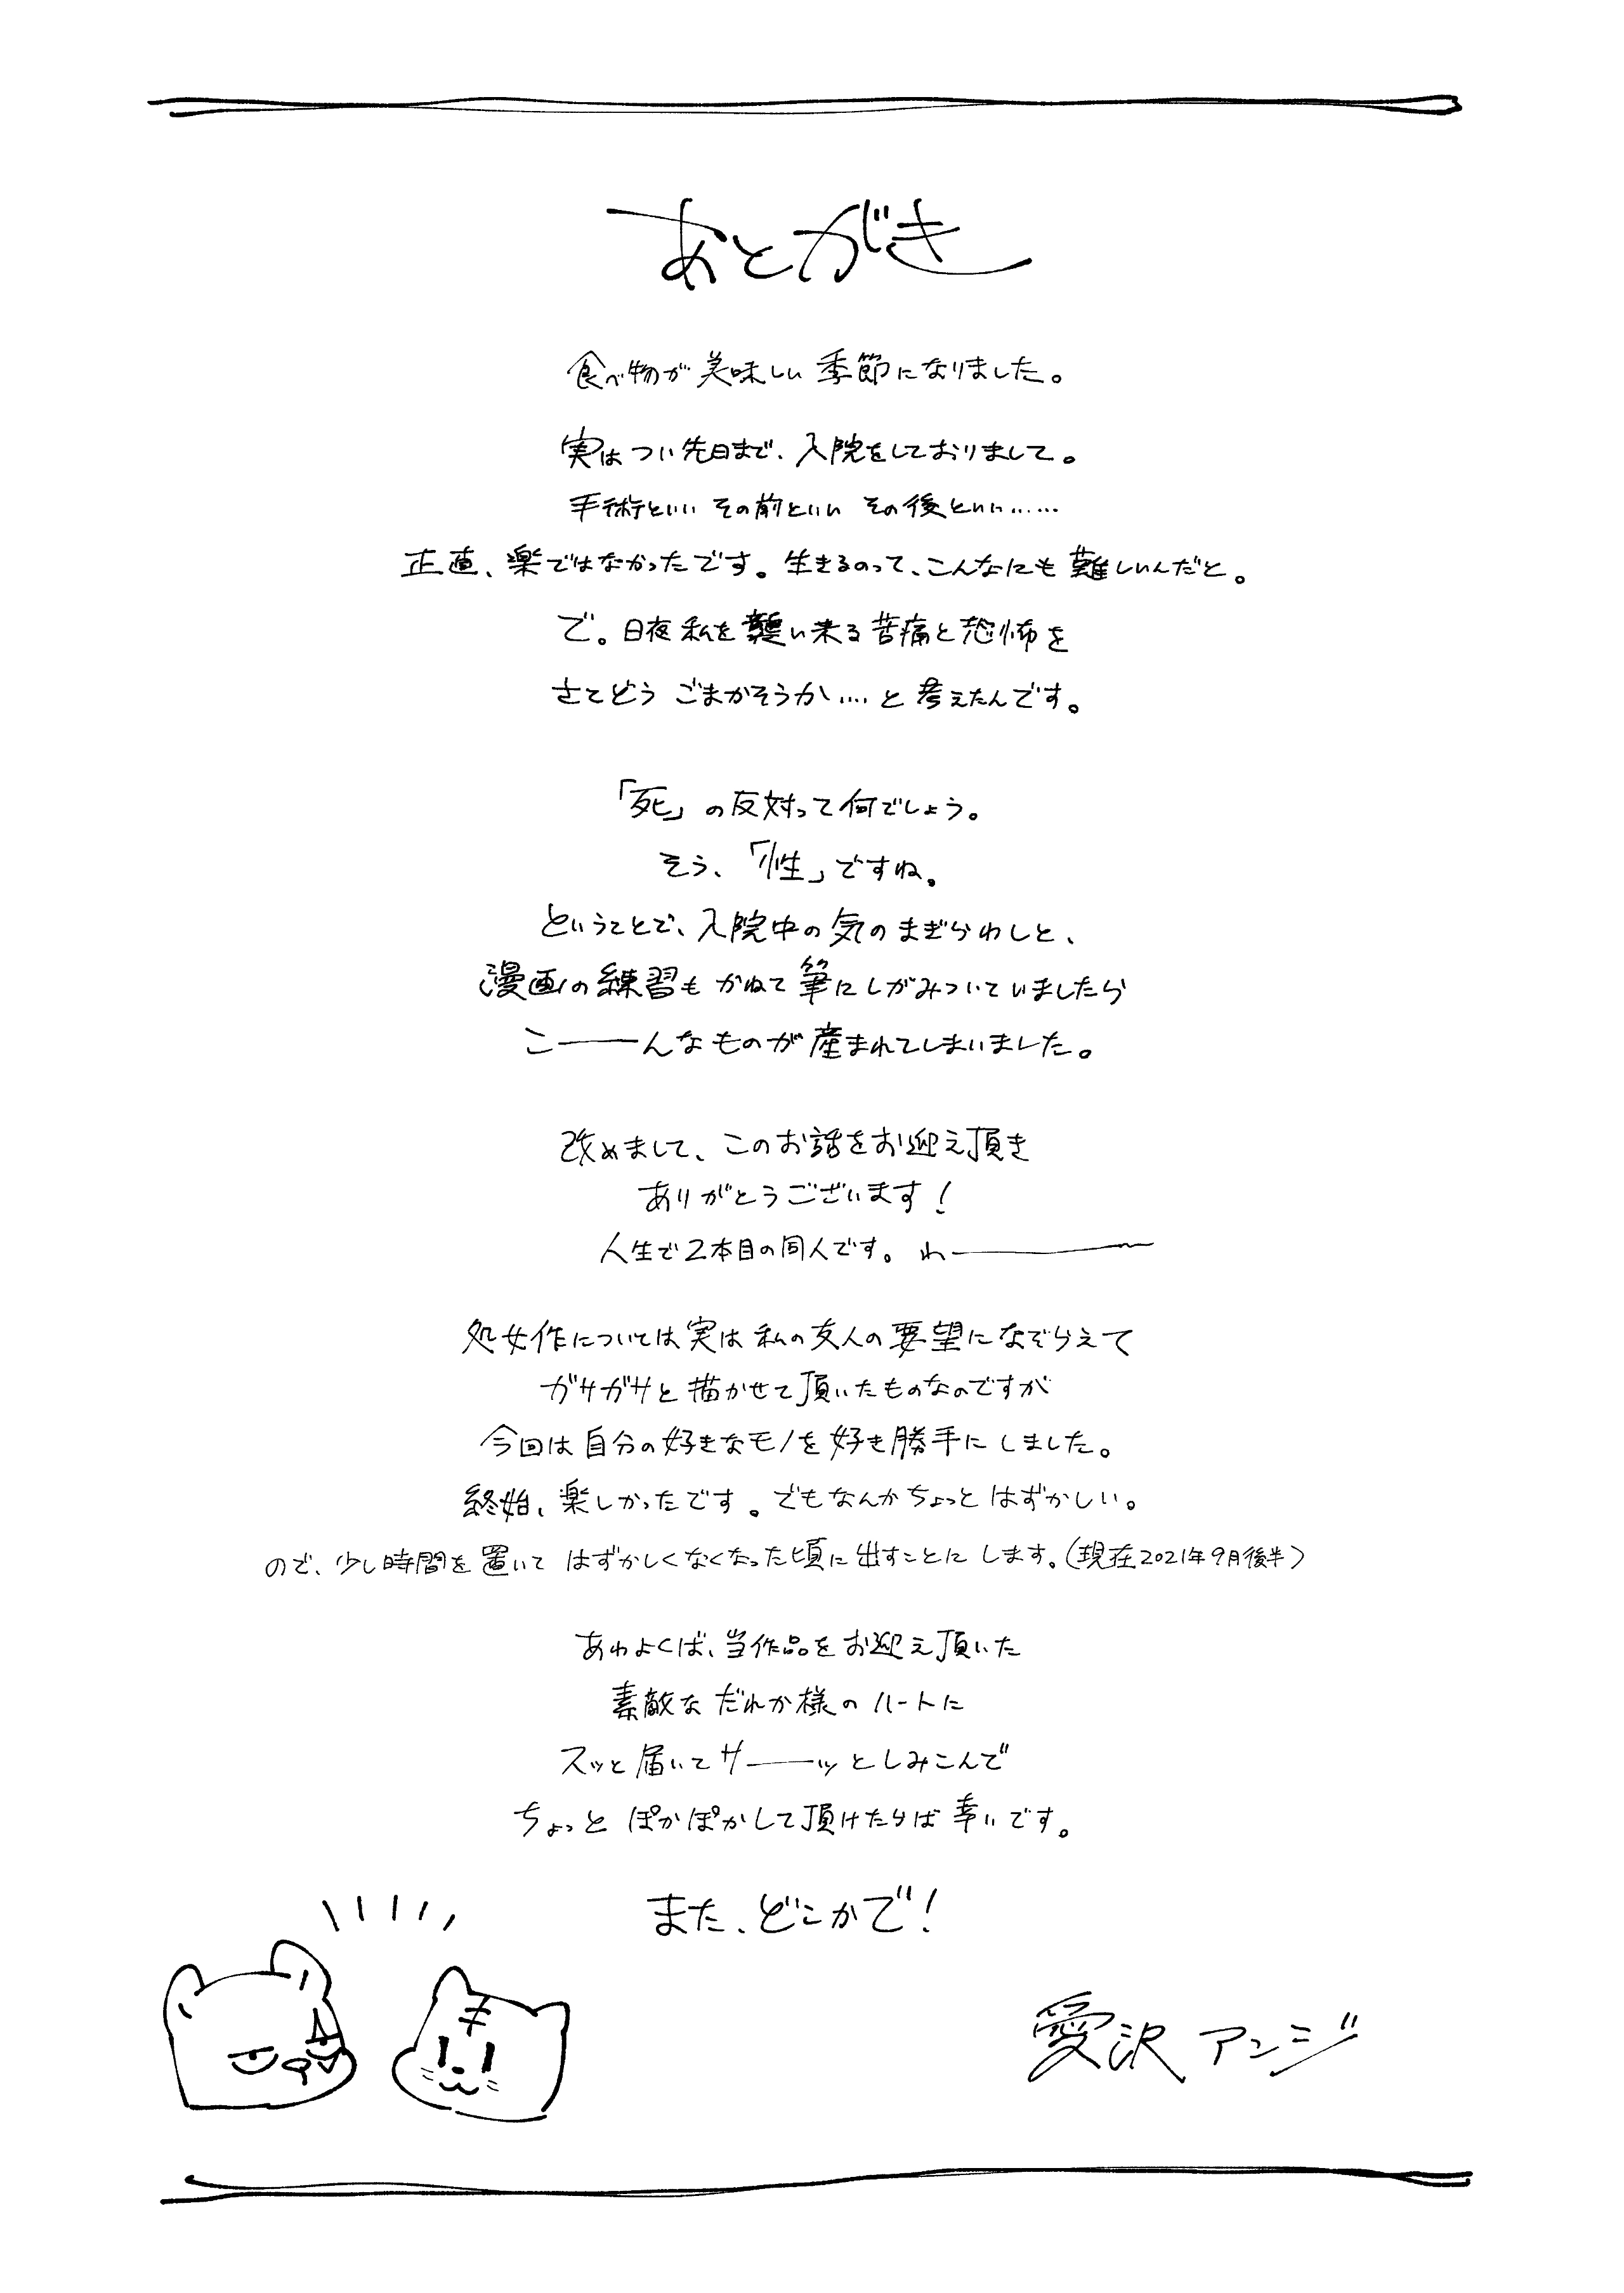 あとがき
食べ物が美味しい季節になりました。
実はつい先日まで、入院をしておりまして。
手術といい その前といい その後といい……
正直、楽ではなかったです。生きるのって、こんなにも難しいんだと。
で。日夜私を襲い来る苦痛と恐怖を
さてどう ごまかそうか…. と考えたんです。
「死」の反対って何でしょう。
そう、「性」ですね。
ということで、入院中の気のまぎらわしと、
漫画の練習も かねて筆にしがみついていましたら
こ――んなものが産まれてしまいました。
改めまして、このお話をお迎え頂き
ありがとうございます!
人生で2本目の同人です。わ――――
処女作については実は私の友人の要望になぞらえて
ガサガサと描かせて頂いたものなのですが
今回は自分の好きなモノを好き勝手にしました。
終始、楽しかったです。でもなんかちょっと はずかしい。
ので、少し時間を置いて はずかしくなくなった頃に出すことにします。(現在2021年9月後半)
あわよくば、当作品をお迎え頂いた
素敵な だれか様の ハートに
スッと届いてサ――ッとしみこんで
ちょっと ぽかぽかして頂けたらば幸いです。
また、どこかで!
愛沢 アンジ